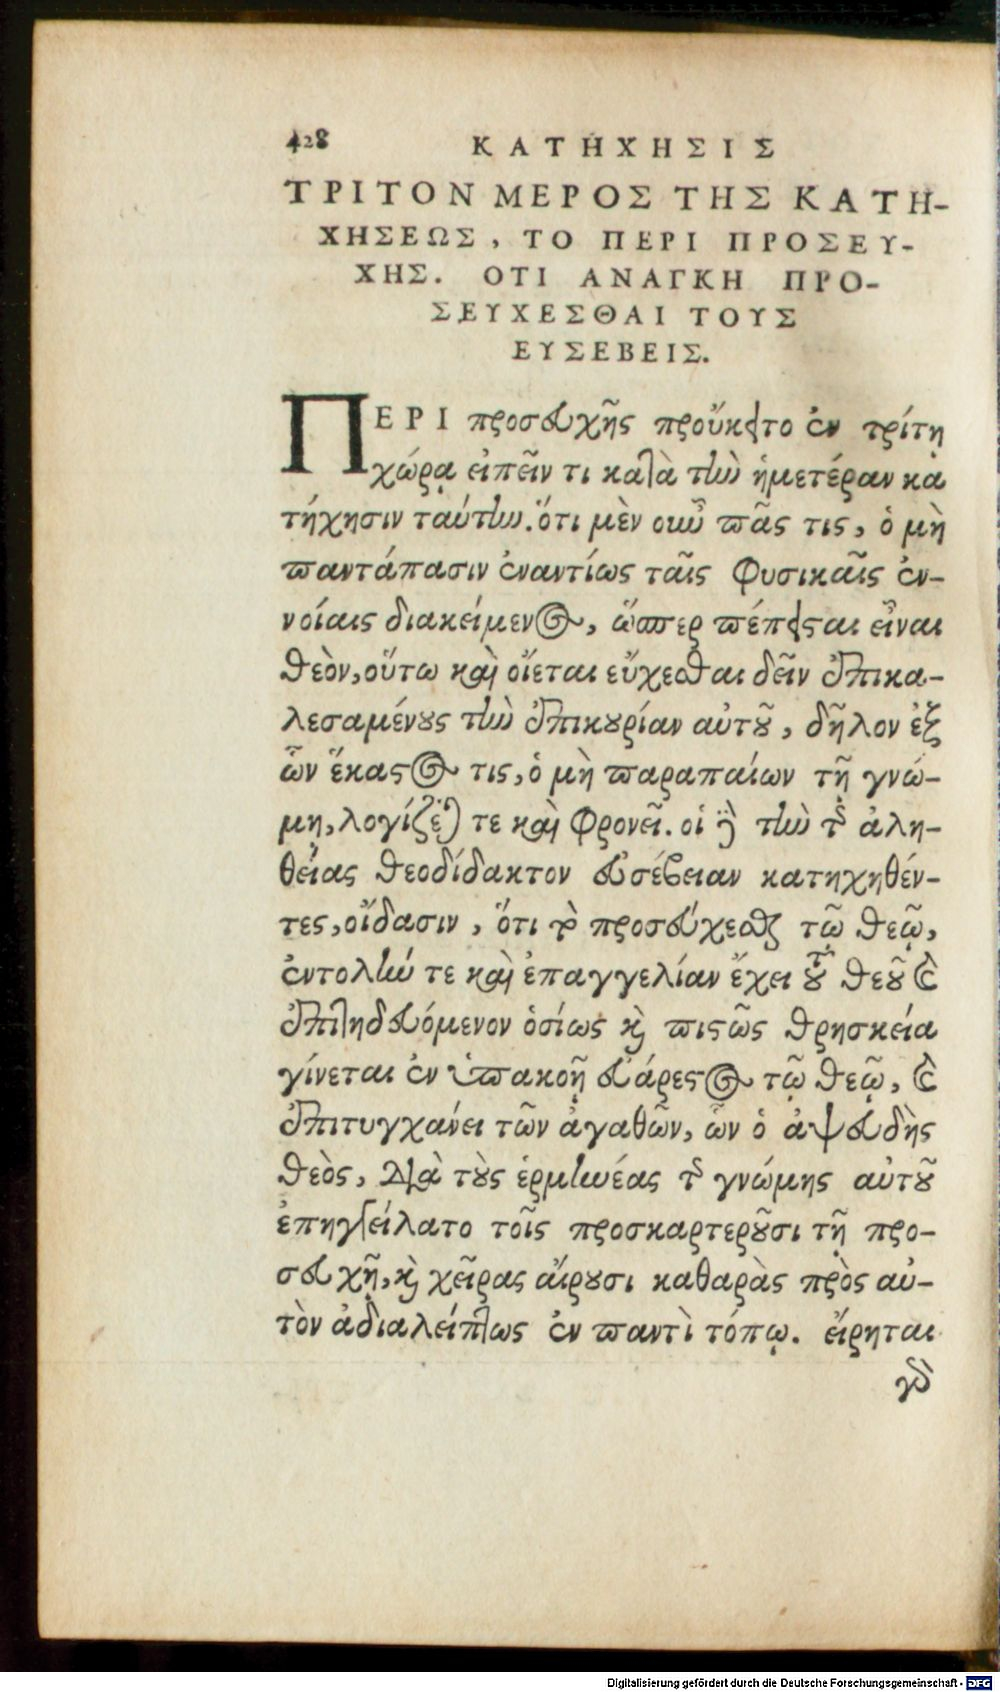 428 ΚΑΤΗΧΗΣΙΣ
ΤΡΙΤΟΝ ΜΕΡΟΣ ΤΗΣ ΚΑΤΗ-
ΧΗΣΕΩΣ, ΤΟ ΠΕΡΙ ΠΡΟΣΕΥ-
ΧΗΣ. ΟΤΙ ΑΝΑΓΚΗ ΠΡΟ-
ΣΕΥΧΕΣΘΑΙ ΤΟΥΣ
ΕΥΣΕΒΕΙΣ.
ΠΕΡΙ προσευχῆς προὔκειτο ἐν τρίτῃ
χώρᾳ εἰπεῖν τι κατὰ τὴν ἡμετέραν κα
τήχησιν ταύτην. ὅτι μὲν οὖν πᾶς τις, ὁ μὴ
παντάπασιν ἐναντίως ταῖς φυσικαῖς ἐν-
νοίαις διακείμενος, ὥσπερ πέπεισται εἶναι
θεὸν, οὕτω καὶ οἴεται εὔχεσθαι δεῖν ἐπικα-
λεσαμένους τὴν ἐπικουρίαν αὐτοῦ, δῆλον ἐξ
ὧν ἕκαστος τις, ὁ μὴ παραπαίων τῇ γνώ-
μῃ, λογίζεταί τε καὶ φρονεῖ. οἱ δὲ τὴν τῆς ἀλη-
θείας θεοδίδακτον εὐσέβειαν κατηχηθέν-
τες, οἴδασιν, ὅτι τὸ προσεύχεσθαι τῷ θεῷ,
ἐντολήν τε καὶ ἐπαγγελίαν ἔχει τοῦ θεοῦ καὶ
ἐπιτηδευόμενον ὁσίως καὶ πιστῶς θρησκεία
γίνεται ἐν ὑπακοῇ εὐάρεστος τῷ θεῷ, καὶ
ἐπιτυγχάνει τῶν ἀγαθῶν, ὧν ὁ ἀψευδὴς
θεὸς, διὰ τοὺς ἑρμηνέας τῆς γνώμης αὐτοῦ
ἐπηγγείλατο τοῖς προσκαρτεροῦσι τῇ προ-
σευχῇ, καὶ χεῖρας αἴρουσι καθαρὰς πρὸς αὐ-
τὸν ἀδιαλείπτως ἐν παντὶ τόπῳ. εἴρηται
γὰρ
Digitalisierung gefördert durch die Deutsche Forschungsgemeinschaft - DFG